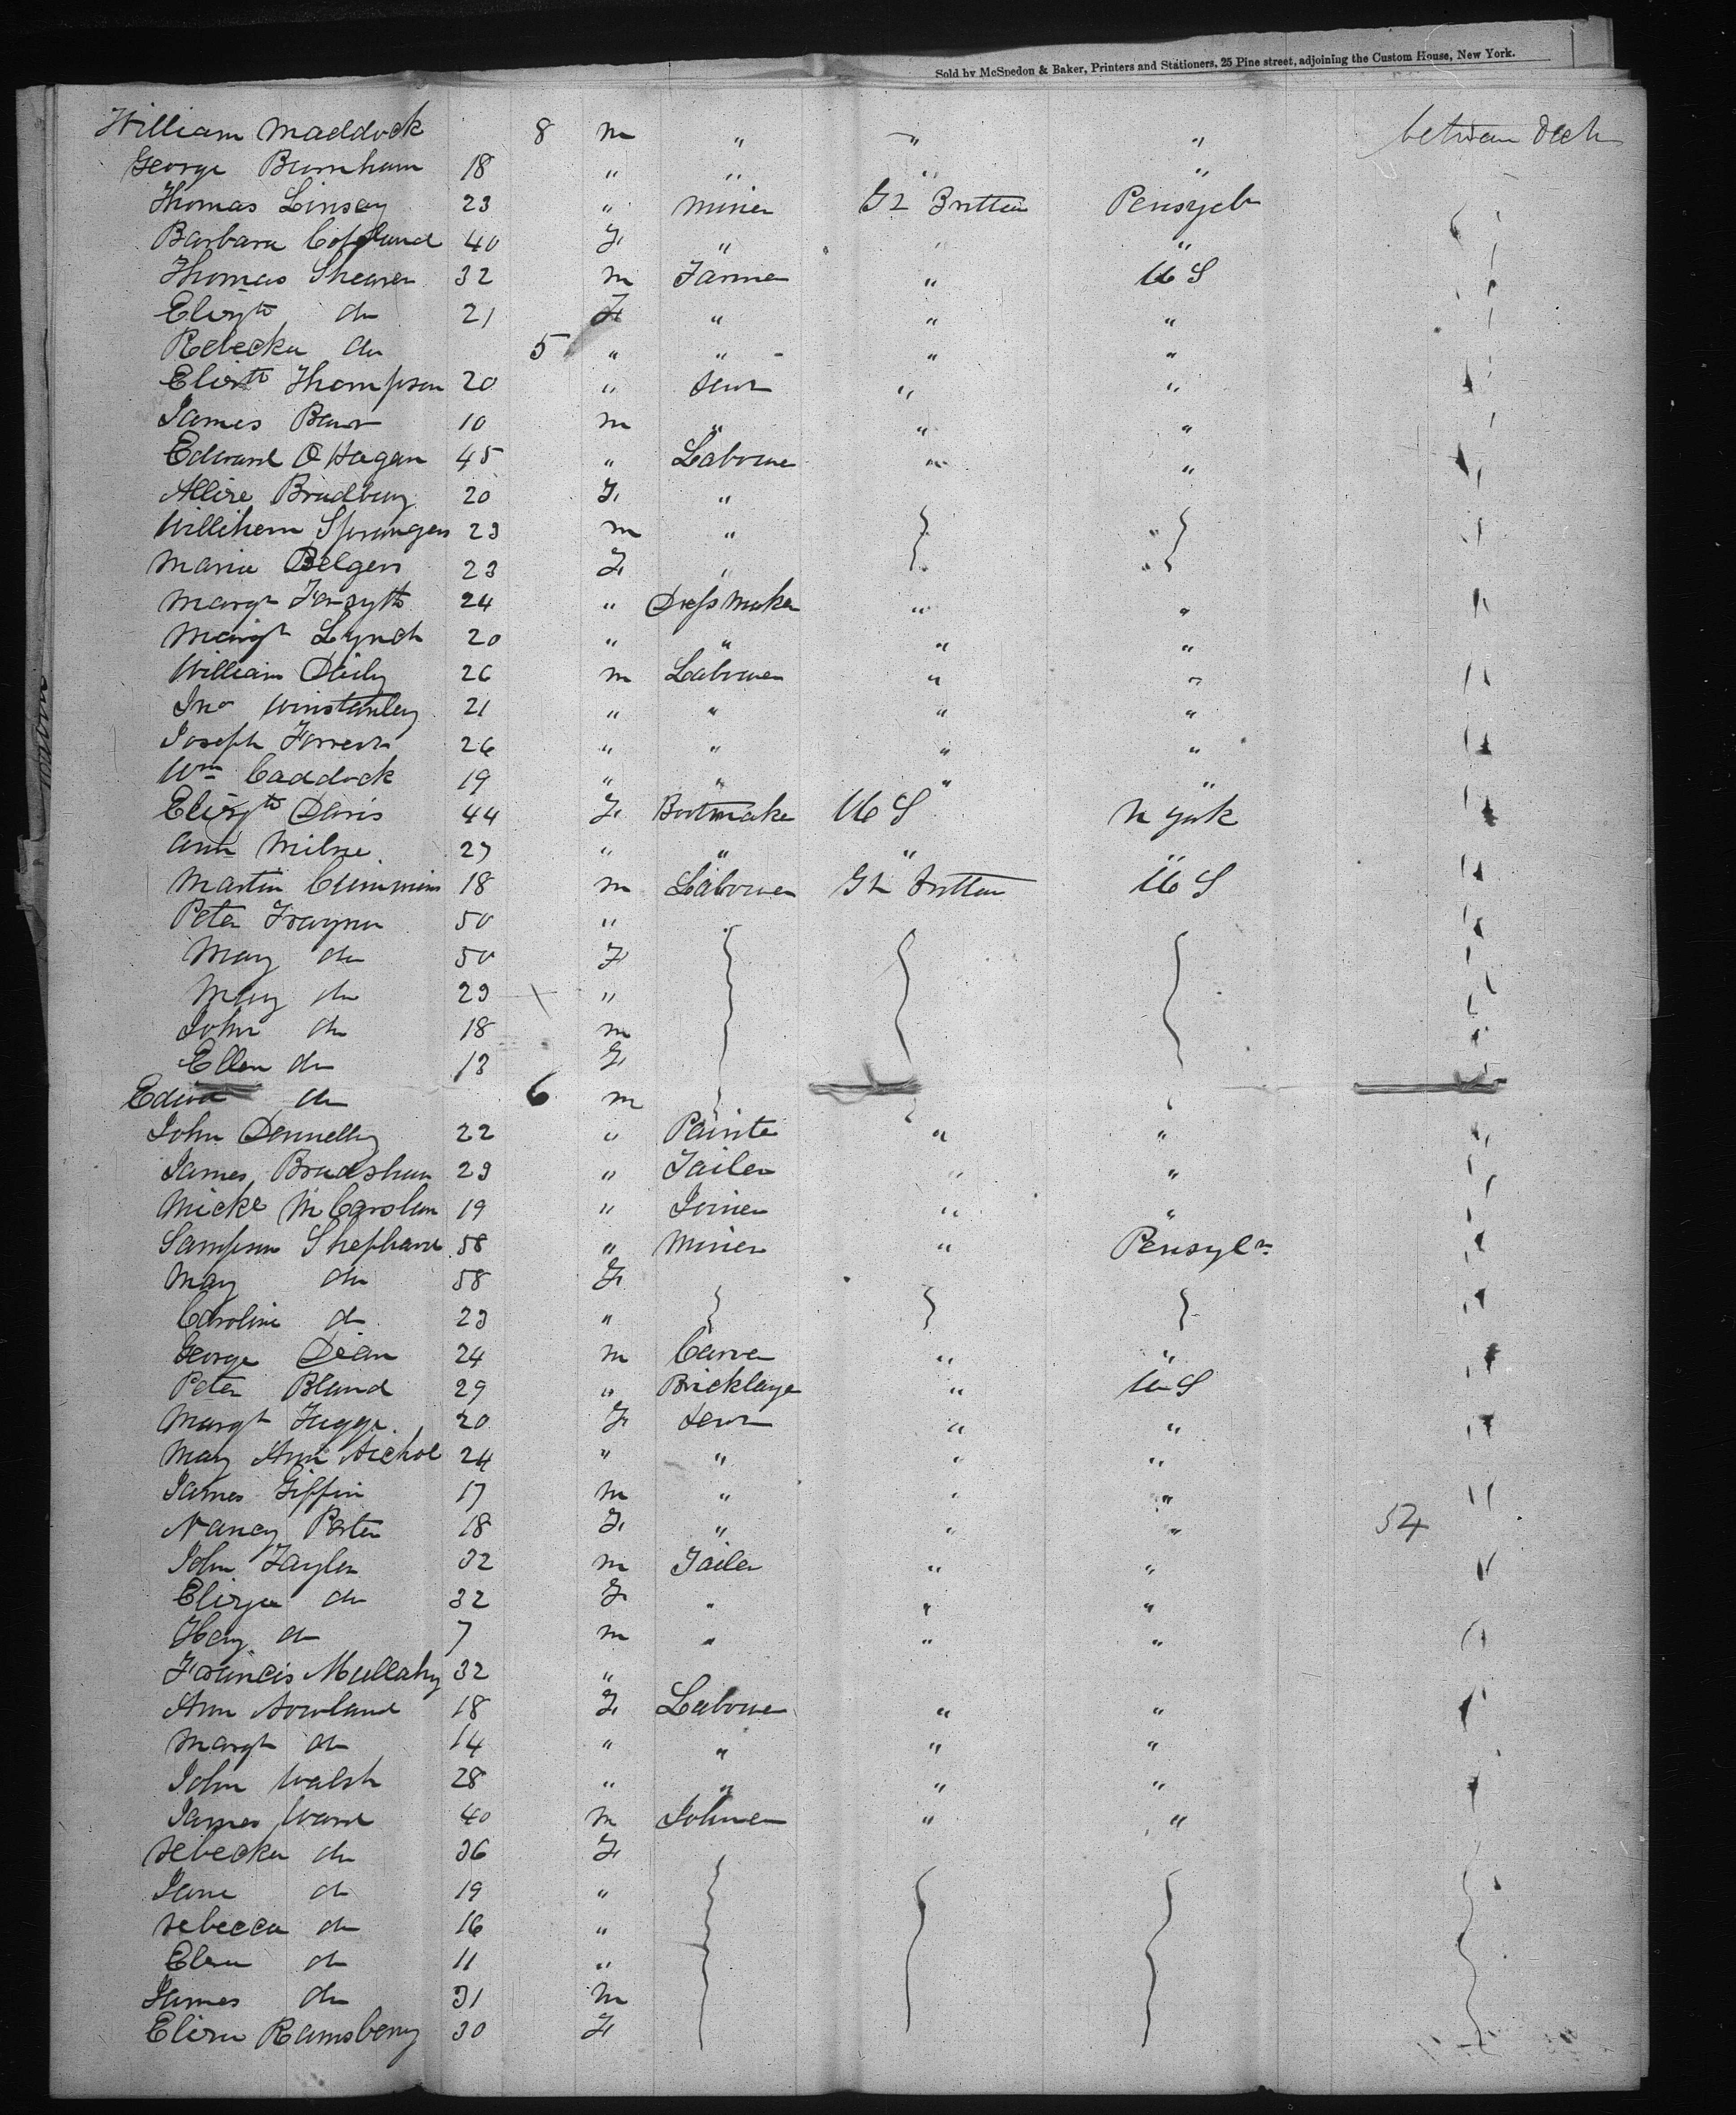 Sold by McSpedon & Baker, Printers and Stationers, 25 Pine street, adjoining the Custom House, New York.
William Maddock 8 m " " " between Deck
George Burnham 18 " " " "
Thomas Linsay 23 " Miner Gt Brittan Pensyl
Barbara Copeland 40 F " " "
Thomas Shearer 32 m Farmer " U S
Elizth do 21 F " " "
Rebecka do 5 " " " "
Elizth Thompson 20 " Servt " "
James 10 m " " "
Edward O Hagan 45 " Labourer " "
Bradbury 20 F "
Sprangers 23 m "
Maria Belgers 23 F "
Margt Forsyth 24 " Dress Maker " "
Margt Lynch 20 " " " "
William Daily 26 m Labourer " "
Jno Winstanley 21 " " " "
Joseph 26 " " " "
Wm Caddock 19 " " " "
Elizth Davis 44 F Bootmaker U S N York
Ann Milne 27 " " " "
Martin Cummins 18 m Labourer Gt Brittan U S
Peter Traynor 50 "
Mary do 50 F
Mary do 23 "
John do 18 m
Ellen do 13 F
do 6 m
John Donnelly 22 " Painter " "
James Bradshaw 23 " Tailer " "
19 " Joiner " "
Sampson Shephard 58 " Miner " Pensyln
Mary do 58 F
Caroline do 23 "
George Dean 24 m Carver " "
Peter Bland 29 " Bricklayer " U S
Margt 20 F Servt " "
Mary Ann Nichol 24 " " " "
James Giffin 17 m " " "
Nancy Porter 18 F " " " 54
John Taylor 32 m Tailer " "
Eliza do 32 F " " "
do 7 m " " "
Francis Mullahy 32 "
Ann Nowland 18 F Labourer " "
Margt do 14 " " " "
John Walsh 28 " " " "
James Ward 40 m " "
Rebecka do 36 F
Jane do 19 "
Rebecca do 16 "
do 11 "
James do 31 m
Eliza Ramsberry 30 F